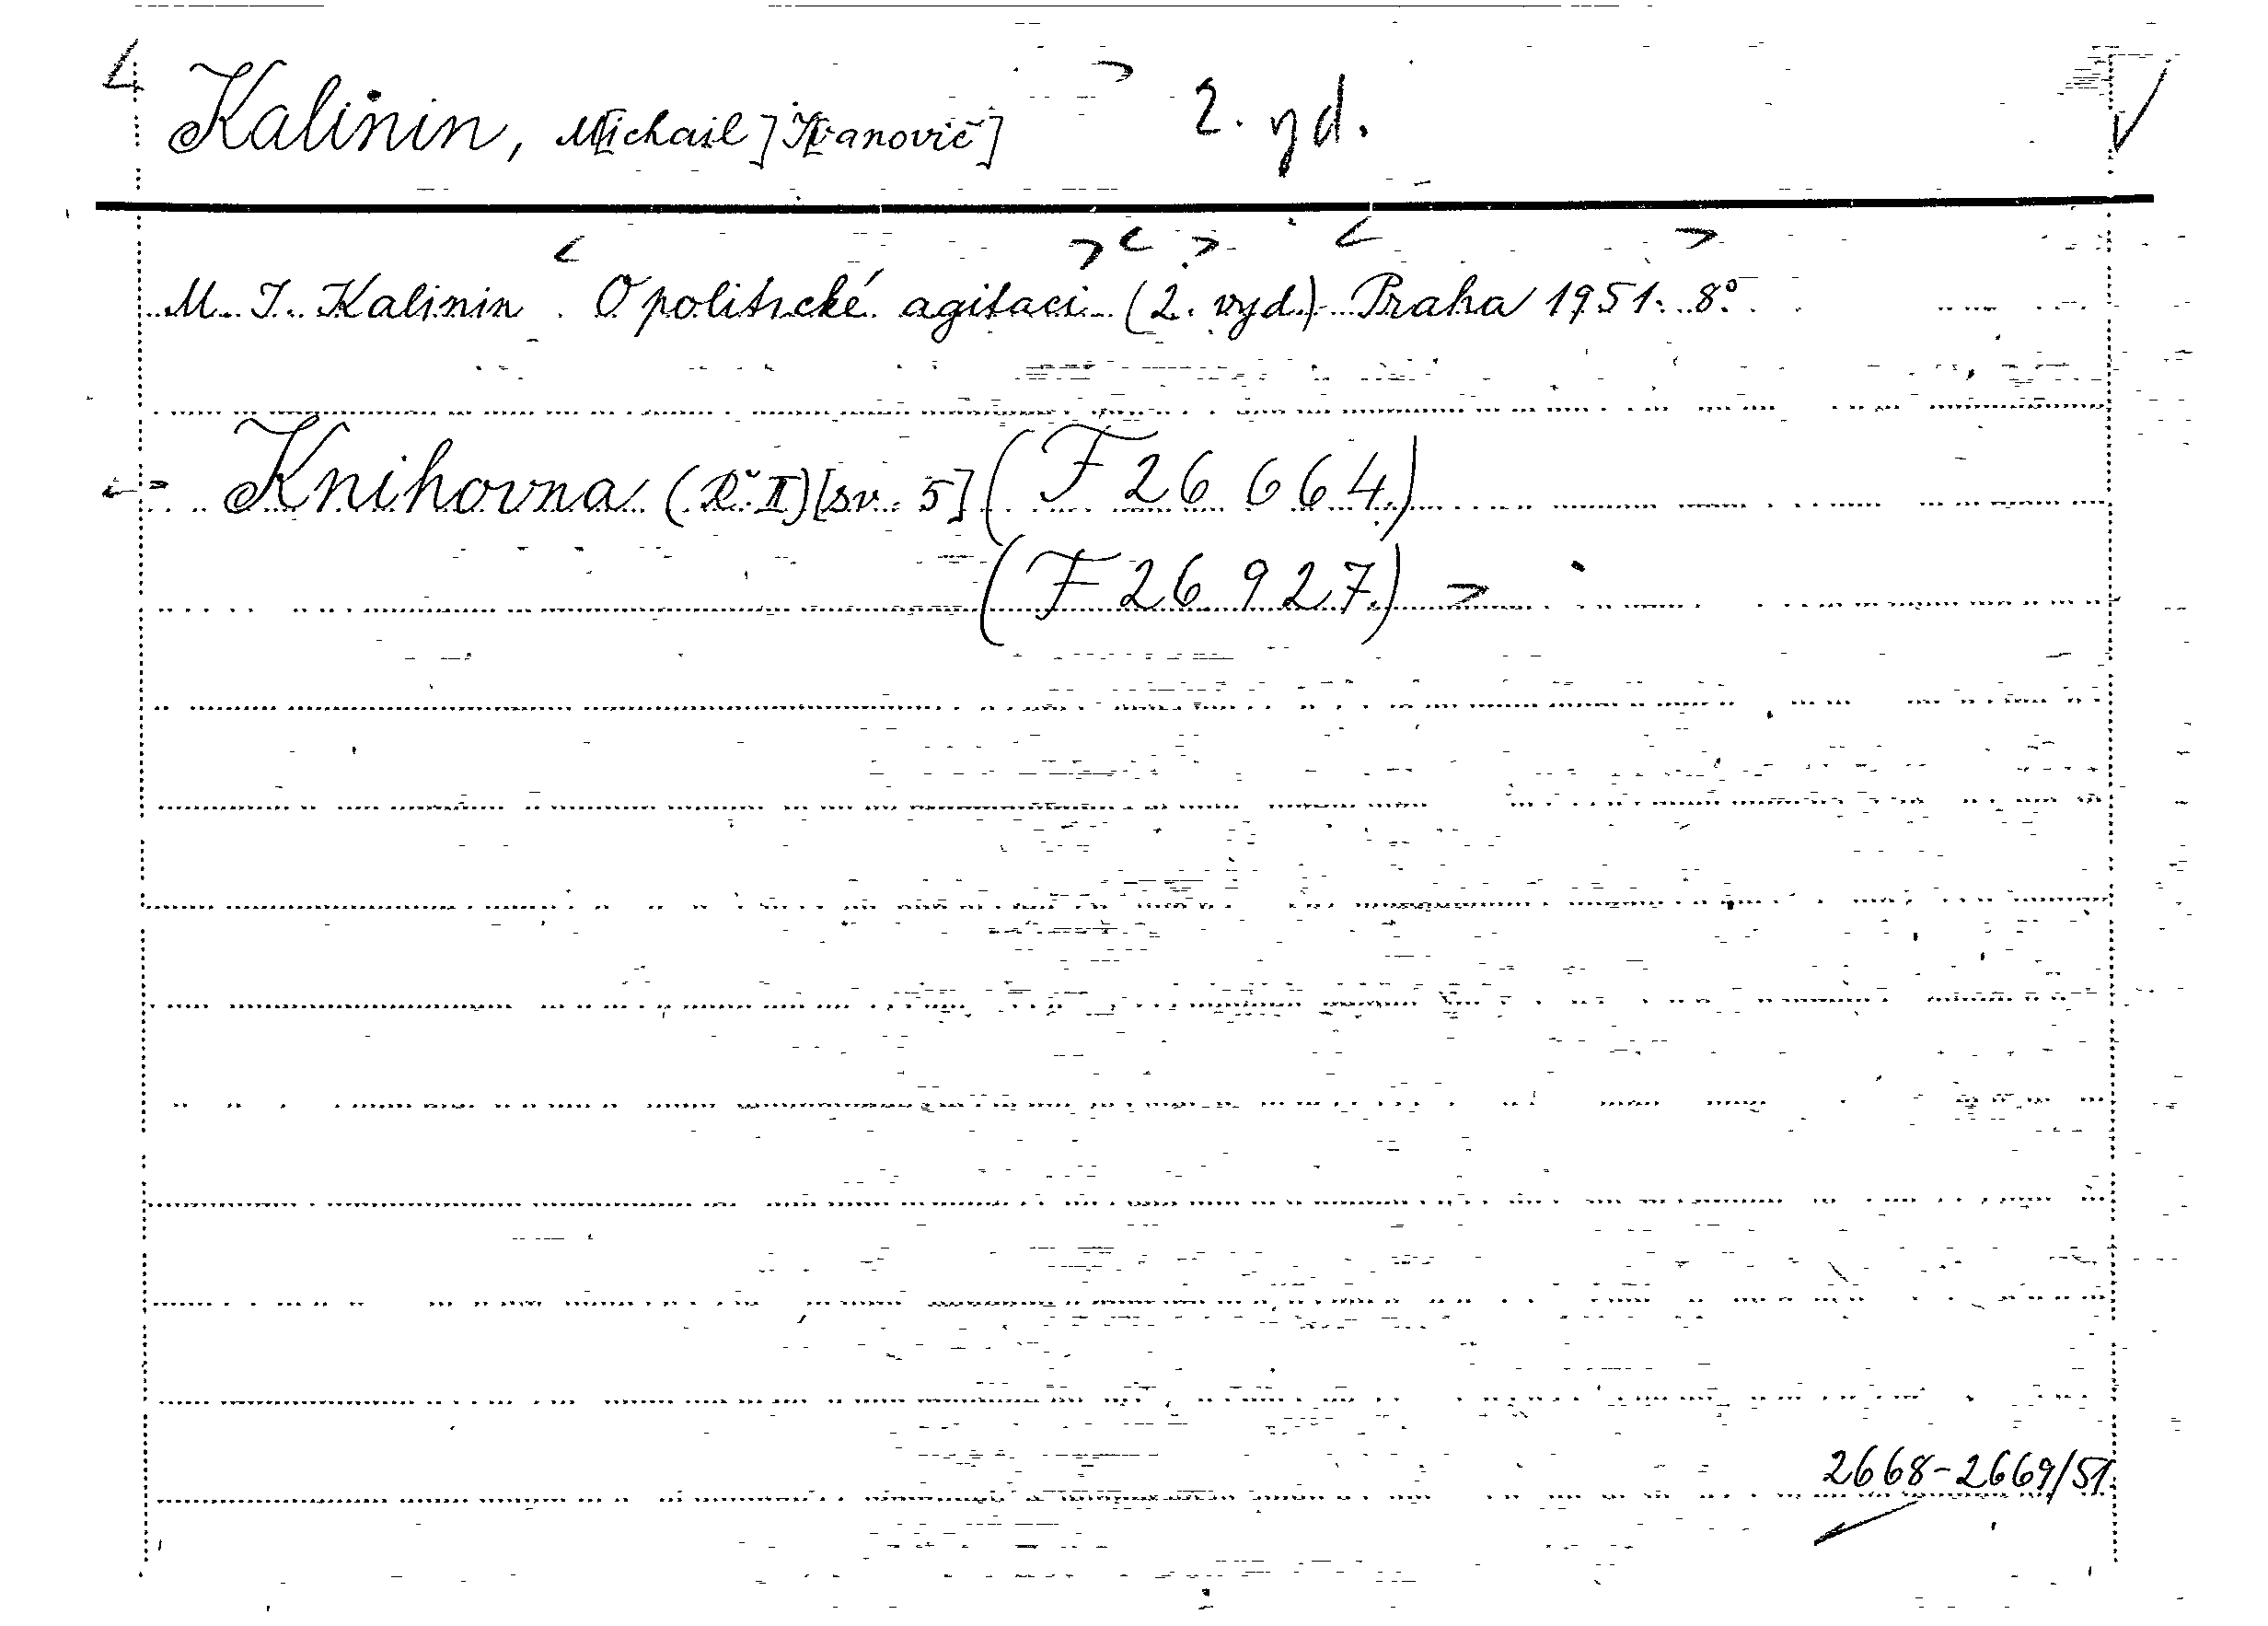 Kalinin, M[ichail] I[vanovič] 2. vyd.
M. I. Kalinin. O politické agitaci. (2. vyd.) Praha 1951. 8°.
Knihovna (Ř. II) [sv. 5] (F 26 664.)
(F 26 927.)
2668-2669/51.